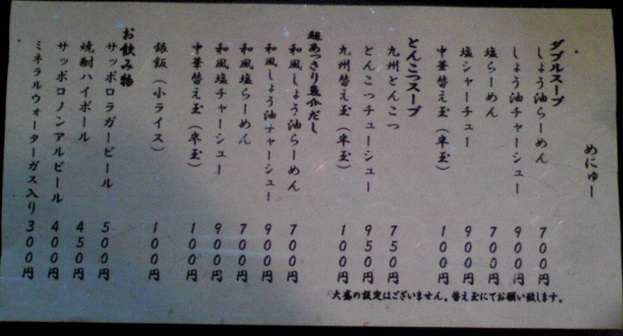 めにゅー
ダブルスープ
しょう油らーめん 700円
しょう油チャーシュー 900円
塩らーめん 700円
塩シャーチュー 900円
中華替え玉（半玉） 100円
とんこつスープ
九州とんこつ 750円
とんこつチューシュー 950円
九州替え玉（半玉） 100円
超あっさり魚介だし
和風しょう油らーめん 700円
和風しょう油チャーシュー 900円
和風塩らーめん 700円
和風塩チャーシュー 900円
中華替え玉（半玉） 100円
銀飯（小ライス） 100円
お飲み物
サッポロラガービール 500円
焼酎ハイボール 450円
サッポロノンアルビール 400円
ミネラルウォーターガス入り 300円
大盛の設定はございません。替え玉にてお願い致します。